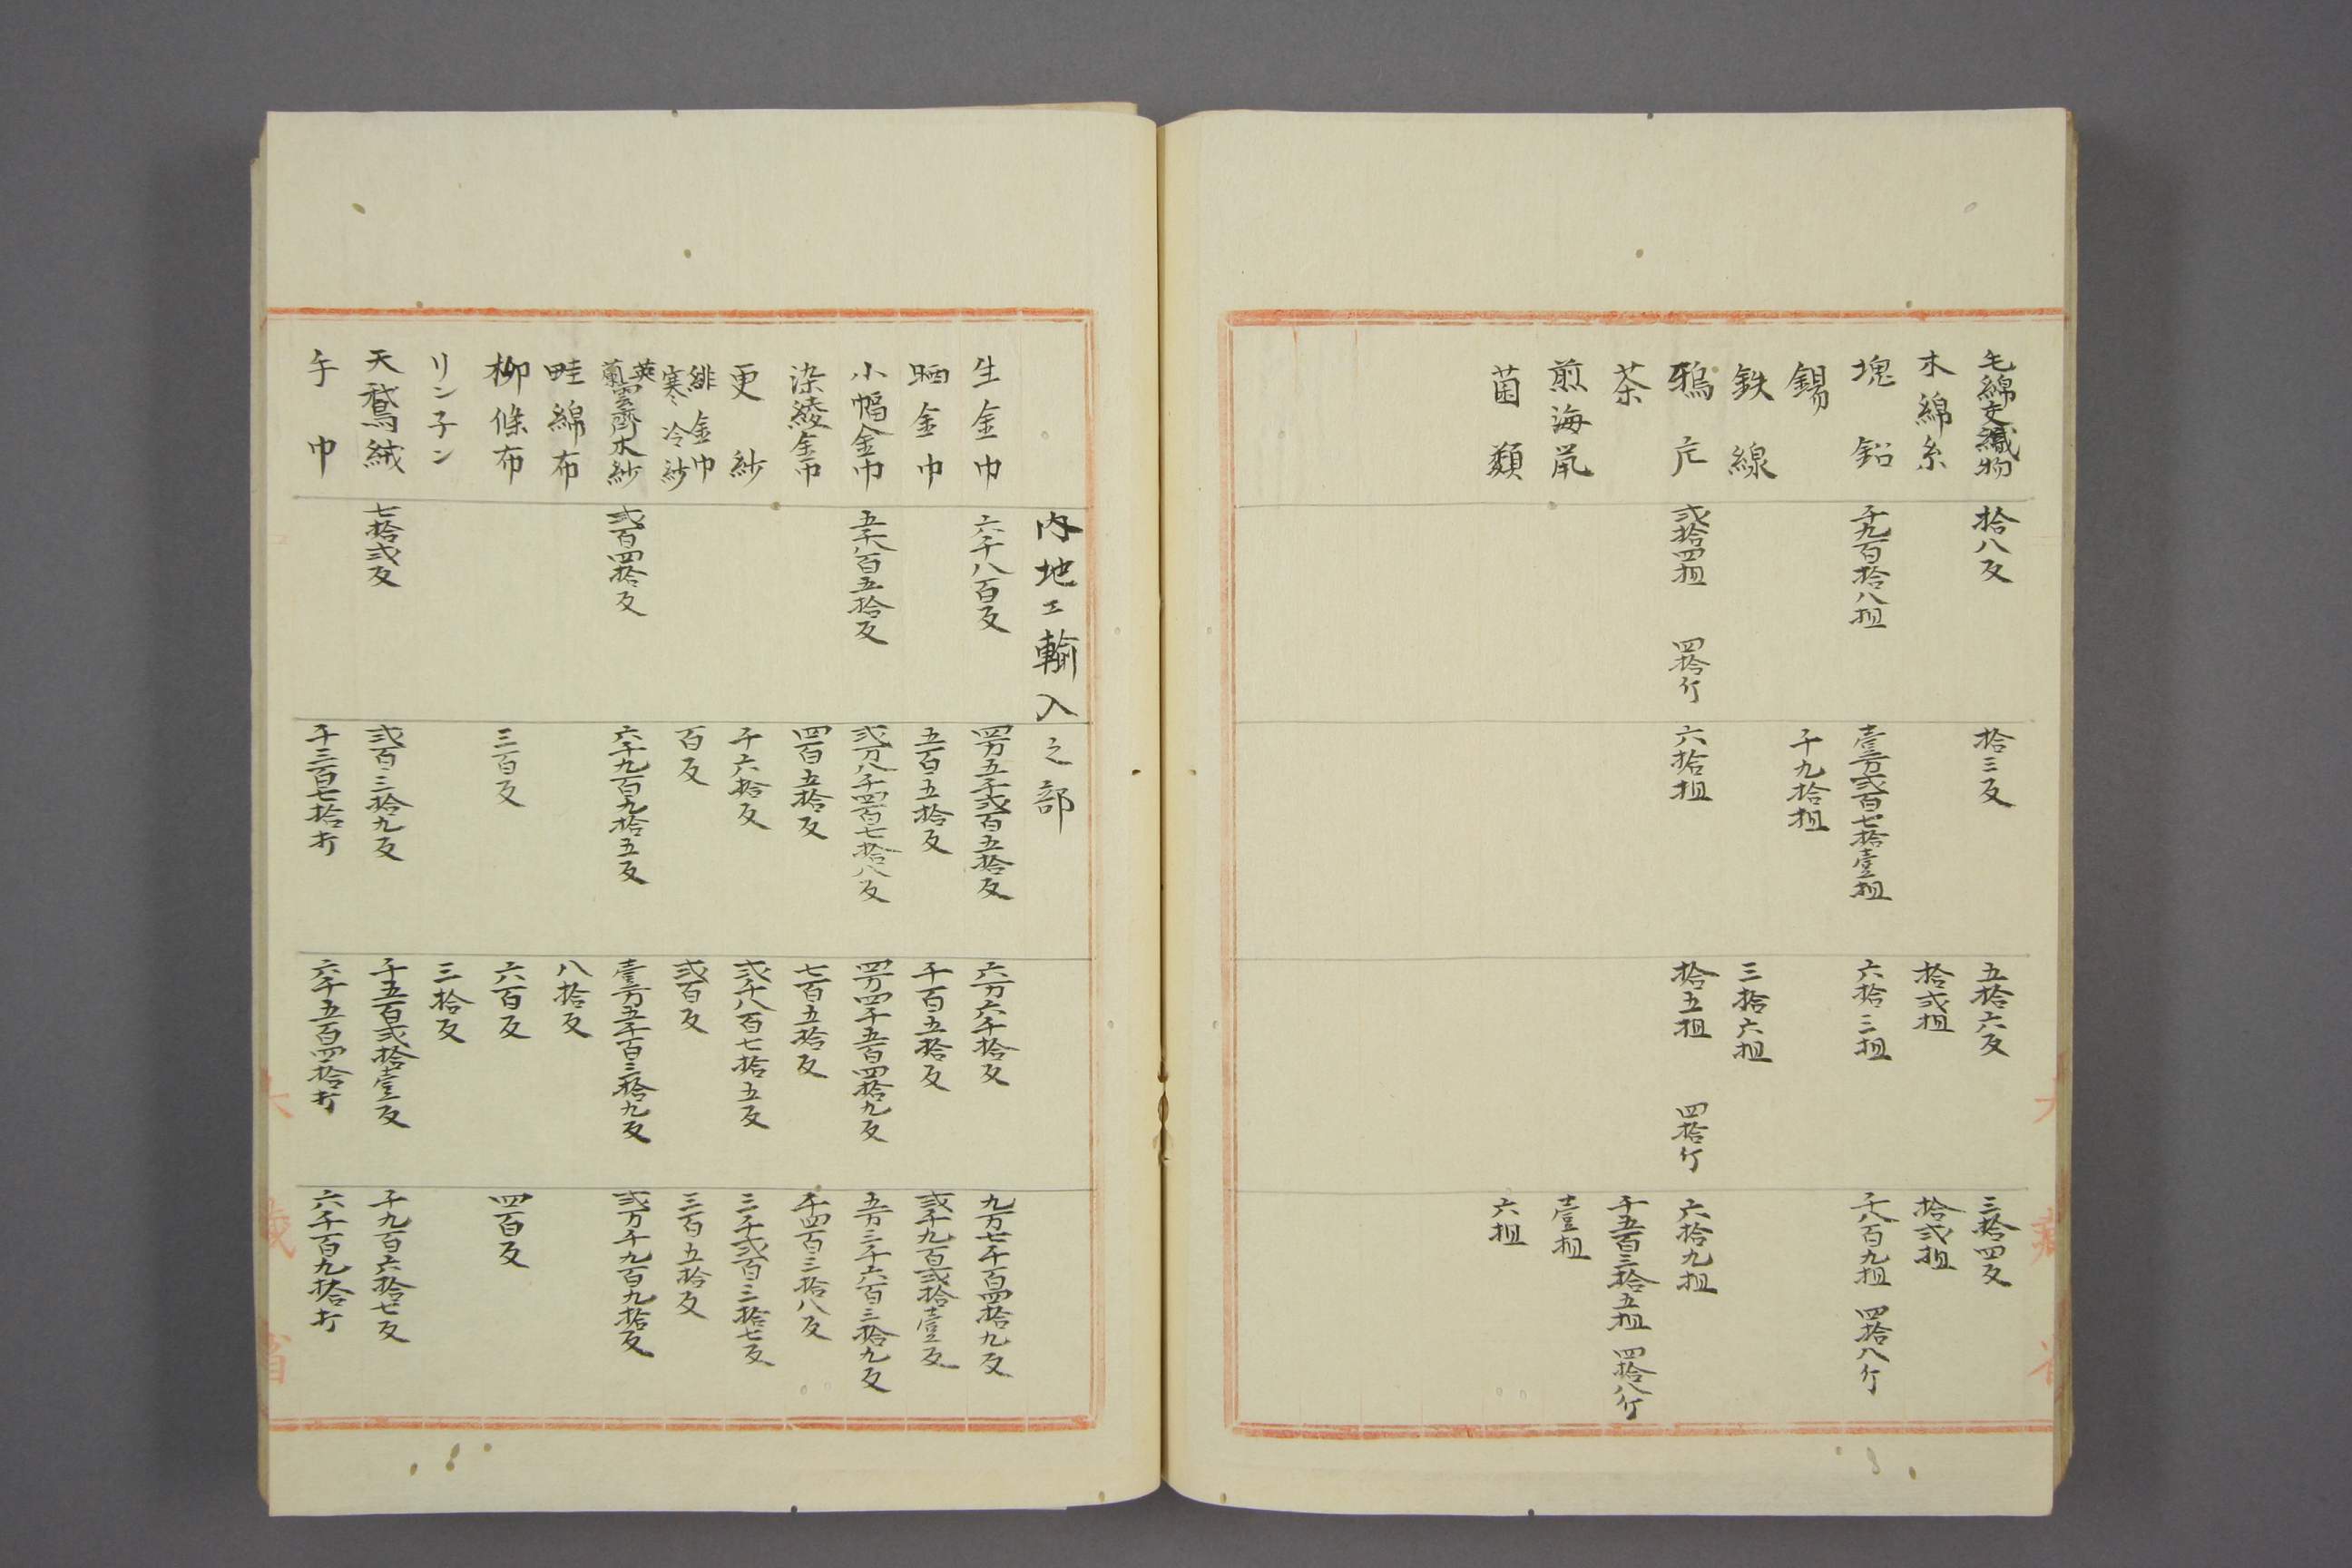 毛綿交織物 拾八反 拾三反 五拾六反 三拾四反
木綿糸 拾弐担 拾弐担
塊鉛 千九百拾八担 壹万弐百七拾壹担 六拾三担 千八百九担 四拾八斤
錫 千九拾担
鉄線 三拾六担
鴉片 弐拾四担 四拾斤 六拾担 拾五担 四拾斤 六拾九担
茶 千五百三拾五担 四拾八斤
煎海鼠 壹担
菌類 六担
内地エ輸入之部
生金巾 六千八百反 四万五千弐百五拾反 六万六千拾反 九万七千百四拾九反
晒金巾 五百五拾反 千百五拾反 弐千九百弐拾壹反
小幅金巾 五千八百五拾反 弐万八千四百七拾八反 四万四千五百四拾九反 五万三千六百三拾九反
染綾金巾 四百五拾反 七百五拾反 千四百三拾八反
更紗 千六拾反 弐千八百七拾五反 三千弐百三拾七反
緋金巾
寒冷紗 百反 弐百反 三百五拾反
英
蘭雲齊木紗 弐百四拾反 六千九百九拾五反 壹万五千百三拾九反 弐万千九百九拾反
畦綿布 八拾反
柳條布 三百反 六百反 四百反
リン子ン 三拾反
天鵞絨 七拾弐反 弐百三拾九反 千五百弐拾壹反 千九百六拾七反
手巾 千三百七拾打 六千五百四拾打 六千百九拾打